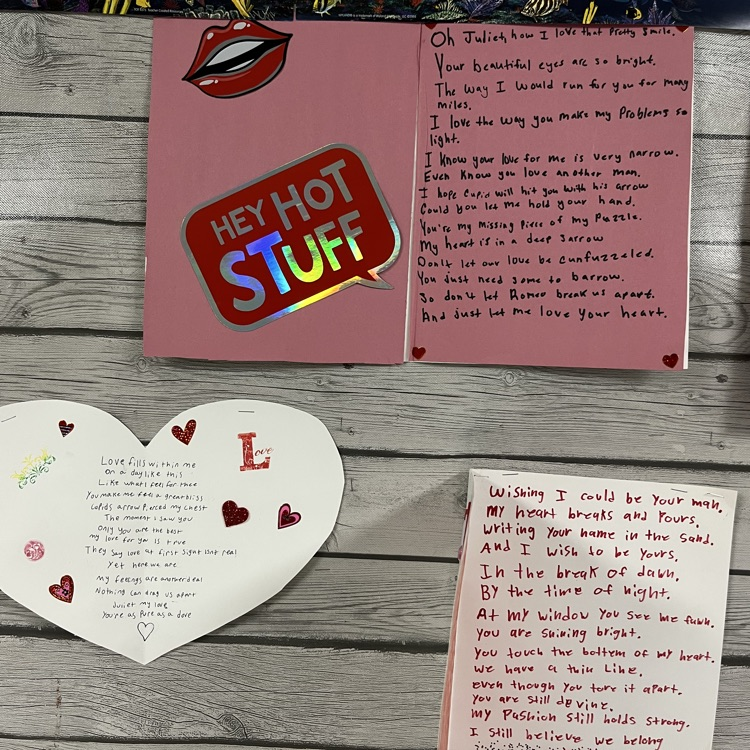 Oh Juliet, how I love that Pretty Smile.
Your beautiful eyes are so bright.
The way I would run for you for many
miles.
I love the way you make my Problems so
light.
I know your love for me is very narrow.
Even know you love another man.
I hope Cupid will hit you with his arrow
Could you let me hold your hand.
You're my Missing Piece of my Puzzle.
My heart is in a deep Sarrow
Don't let our love be cunfuzzeled.
You just need some to barrow.
So don't let Romeo break us apart.
And just let me love your heart.
HEY HOT
STUFF
Love fills within me
On a day like this
Like what I feel for thee
You make me feel a great bliss
Cupids arrow Pierced my chest
The moment I saw you
Only you are the best
my love for you is true
They say love at first sight isnt real
Yet here we are
my feelings are another deal
Nothing can drag us apart
Juliet my love
You're as Pure as a dove
Love
Wishing I could be your man.
My heart breaks and Pours.
Writing your name in the Sand.
And I wish to be yours.
In the break of dawn.
By the time of night.
At my window you see me fawn.
you are shining bright.
you touch the bottem of my heart.
we have a thin Line.
even though you tore it apart.
you are still devine.
My Pashion still holds strong.
I still believe we belong